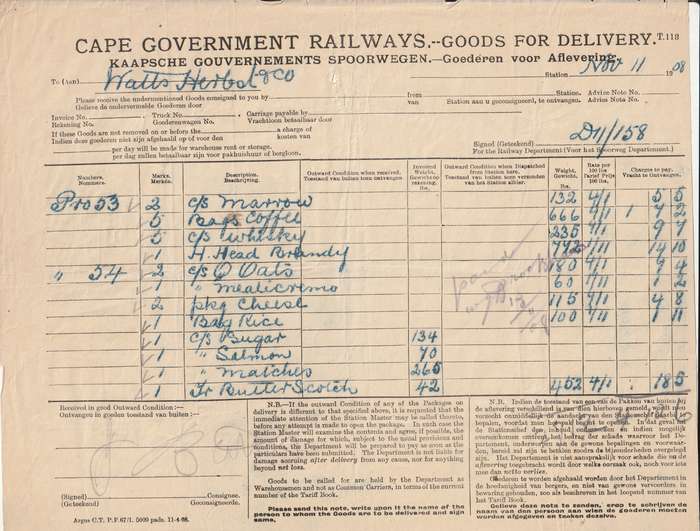 CAPE GOVERNMENT RAILWAYS.--GOODS FOR DELIVERY. T.113
KAAPSCHE GOUVERNEMENTS SPOORWEGEN.—Goederen voor Aflevering.
To (Aan) Watts Herbst & Co Station Nov 11 1908
Please receive the undermentioned Goods consigned to you by from Station. Advice Note No.
Gelieve da ondervermelde Goederen door van Station aan u geconsigneerd, te ontvangen. Advies Note No.
Invoice No. Truck No. Carriage payable by
Rekening No. Goederenwagen No. Vrachtloon betaalbaar door
If these Goods are not removed on or before the a charge of
Indien deze goederen niet zijn afgehaald op of voor den kosten van
D11/158
Signed (Geteekend)
per day will be made for warehouse rent or storage. For the Railway Department (Voor het Spoorweg Departement.)
per dag zullen betaalbaar zijn voor pakhuishuur of bergloon.
Numbers. Nummers. Marks. Merken. Description. Beschrijving. Outward Condition when received. Toestand van buiten toen ontvangen Invoiced Weight, Gewicht op rekening, lbs. Outward Condition when Dispatched from Station here. Toestand van buiten toen verzonden van het Station alhier. Weight, Gewicht, lbs. Rate per 100 lbs Tarief Prijs 100 lbs Charges to pay. Vracht te Ontvangen.
Pro 53 2 c/s Marrow 132 4/1 5 5
5 Bags Coffee 666 4/11 1 7 2
5 c/s Whisky 235 4/1 9 7
1 H. Head Brandy 772 1/11 14 10
" 54 2 c/s Q Oats 180 4/1 7 4
1 " Mealicremo 60 1/11 1 2
2 pkg Cheese 115 4/1 4 8
1 Bag Rice 100 1/11 1 11
1 c/s Sugar 134
1 " Salmon 70
1 " Matches 265
1 Tr Butter Scotch 42 452 4/1 18 5
Received in good Outward Condition :—
Ontvangen in goeden toestand van buiten :
(Signed) Consignee.
(Geteekend) Geconsigneerde.
Argus C.T. P.F. 67/1. 5000 pads. 11-4-08.
N.B.—If the outward Condition of any of the Packages on
delivery is different to that specified above, it is requested that the
immediate attention of the Station Master may be called thereto,
before any attempt is made to open the package. In such case the
Station Master will examine the contents and agree, if possible, the
amount of damage for which, subject to the usual provisions and
conditions, the Department will be prepared to pay as soon as the
particulars have been submitted. The Department is not liable for
damage accruing after delivery from any cause, nor for anything
beyond net loss.
Goods to be called for are held by the Department as
Warehousemen and not as Common Carriers, in terms of the current
number of the Tariff Book.
Please send this note, writing upon it the name of the
person to whom the Goods are to be delivered and sign
same,
N.B. Indien de toestand van een van de Pakken van buiten bij
de aflevering verschillend is van dien hierboven gemeld, wordt men
verzocht onmiddellijk de aandacht van den Stationmeester
bepalen, voordat men het pakje te openen. In dat geval zal
de Stationmeester den inhoud onderzoeken
het bedrag der schade waarvoor het De-
partement, onderworpen aan de gewone bepalingen en voorwaar-
den, bereid zal zijn te betalen zoodra de bijzonderheden overgelegd
zijn. Het Departement is niet aansprakelijk voor schade die na de
aflevering toegebracht wordt door welke oorzaak ook, noch voor iets
meer dan netto verlies.
Goederen te worden afgehaald worden door het Departement in
de hoedanigheid van bergers, en niet van gewone vervoerders in
bewaring gehouden, zoo als beschreven in het loopend nummer van
het Tarief Boek.
Gelieve deze nota te zenden, erop te schrijven de
naam van den persoon aan wien de goederen moeten
worden afgegeven en taeken Dezelve.